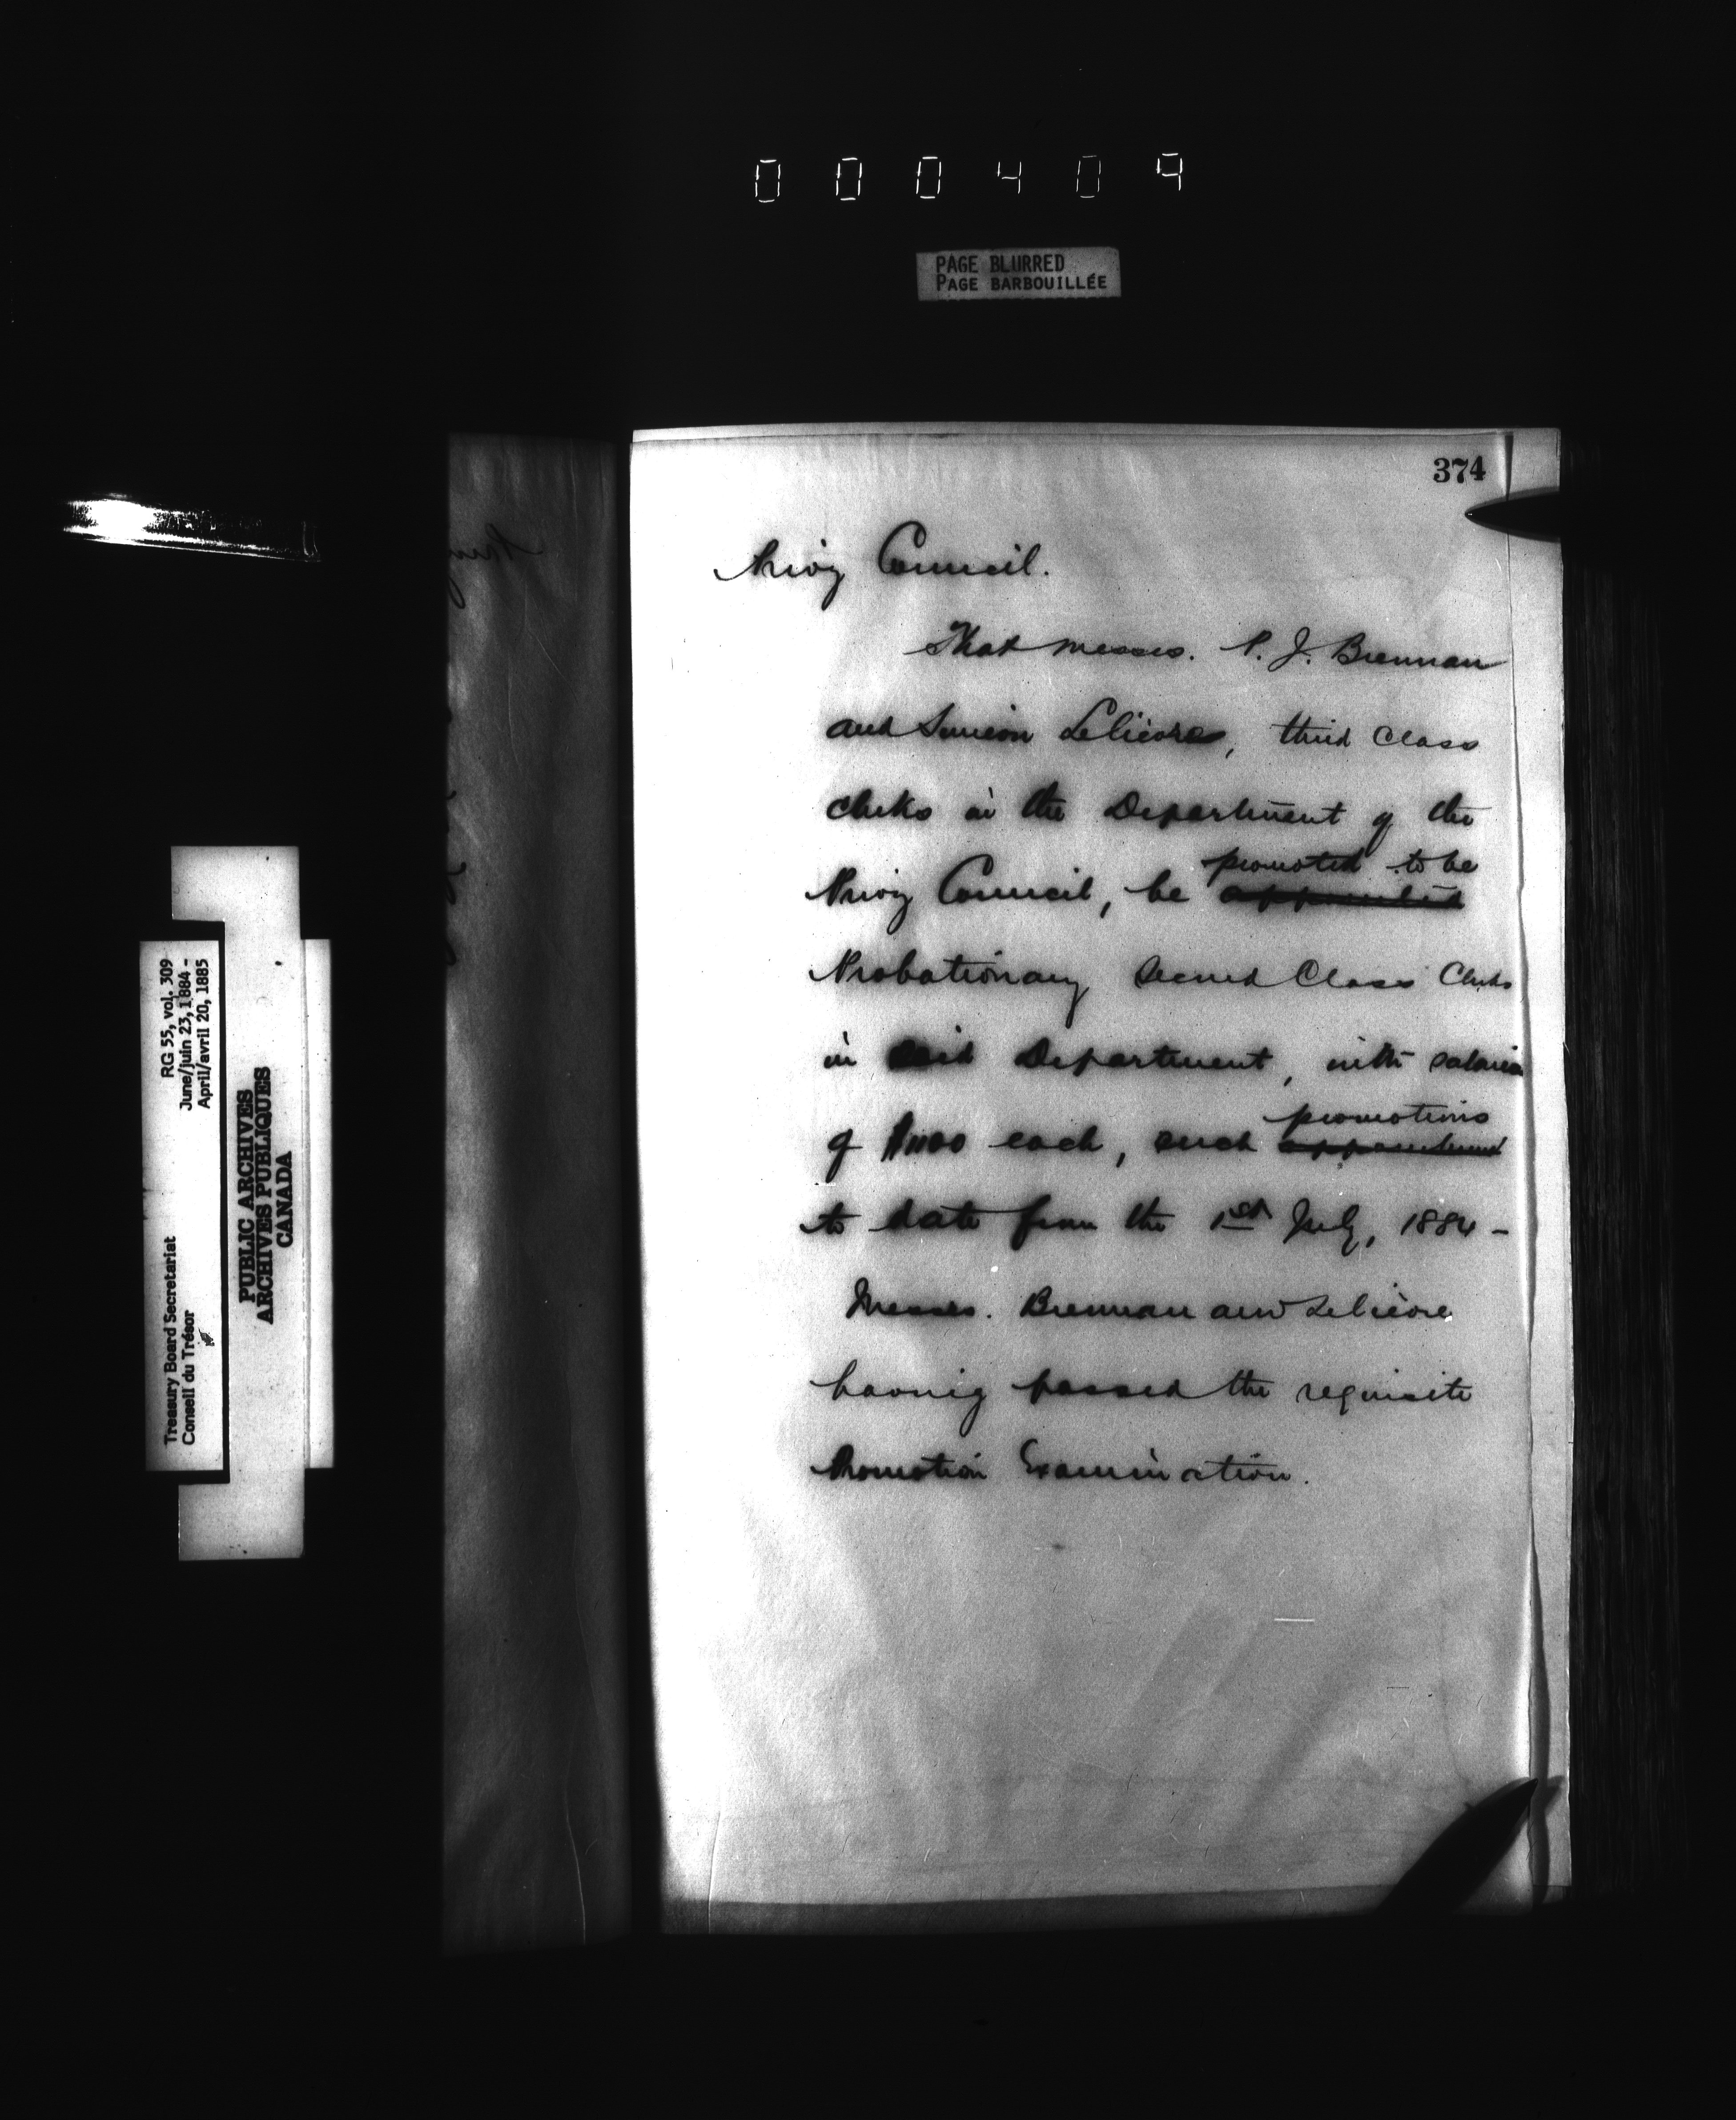 000409
PAGE BLURRED
PAGE BARBOUILLÉE
374
Privy Council.
That Messrs. P. J. Brennan
and Simeon Lelièvre, third Class
clerks in the Department of the
promoted to be
Privy Council, be appointed
Probationary Second Class Clerks
in said Department, with salaries
promotions
of $1100 each, such appointment
to date from the 1st July, 1884 -
Messrs. Brennan and Lelièvre
having passed the requisite
Promotion Examination.
RG 55, vol. 309
June/juin 23, 1884 -
April/avril 20, 1885
Treasury Board Secretariat
Conseil du Trésor
PUBLIC ARCHIVES
ARCHIVES PUBLIQUES
CANADA